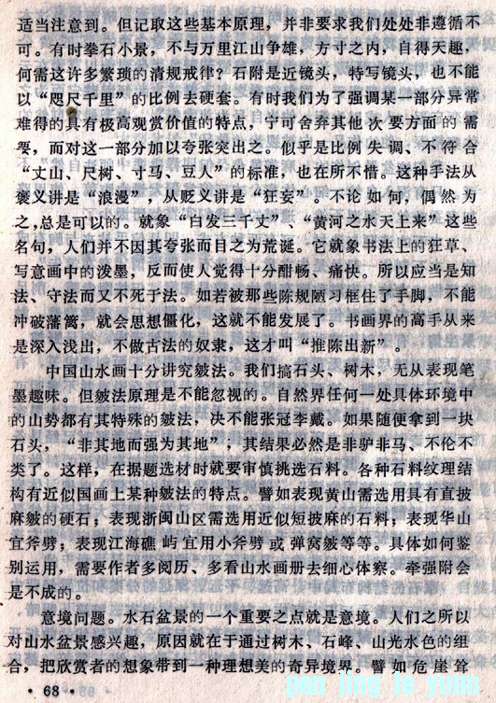 适当注意到。但记取这些基本原理，并非要求我们处处非遵循不
可。有时拳石小景，不与万里江山争雄，方寸之内，自得天趣，
何需这许多繁琐的清规戒律？石附是近镜头，特写镜头，也不能
以“咫尺千里”的比例去硬套。有时我们为了强调某一部分异常
难得的具有极高观赏价值的特点，宁可舍弃其他次要方面的需
要，而对这一部分加以夸张突出之。似乎是比例失调、不符合
“丈山、尺树、寸马、豆人”的标准，也在所不惜。这种手法从
褒义讲是“浪漫”，从贬义讲是“狂妄”。不论如何，偶然为
之，总是可以的。就象“白发三千丈”、“黄河之水天上来”这些
名句，人们并不因其夸张而目之为荒诞。它就象书法上的狂草、
写意画中的泼墨，反而使人觉得十分酣畅、痛快。所以应当是知
法、守法而又不死于法。如若被那些陈规陋习框住了手脚，不能
冲破藩篱，就会思想僵化，这就不能发展了。书画界的高手从来
是深入浅出，不做古法的奴隶，这才叫“推陈出新”。
中国山水画十分讲究皴法。我们搞石头、树木，无从表现笔
墨趣味。但皴法原理是不能忽视的。自然界任何一处具体环境中
的山势都有其特殊的皴法，决不能张冠李戴。如果随便拿到一块
石头，“非其地而强为其地”；其结果必然是非驴非马、不伦不
类了。这样，在据题选材时就要审慎挑选石料。各种石料纹理结
构有近似国画上某种皴法的特点。譬如表现黄山需选用具有直披
麻皴的硬石；表现浙闽山区需选用近似短披麻的石料；表现华山
宜斧劈；表现江海礁屿宜用小斧劈或弹窝皴等等。具体如何鉴
别运用，需要作者多阅历、多看山水画册去细心体察。牵强附会
是不成的。
意境问题。水石盆景的一个重要之点就是意境。人们之所以
对山水盆景感兴趣，原因就在于通过树木、石峰、山光水色的组
合，把欣赏者的想象带到一种理想美的奇异境界。譬如危崖耸
· 68 ·